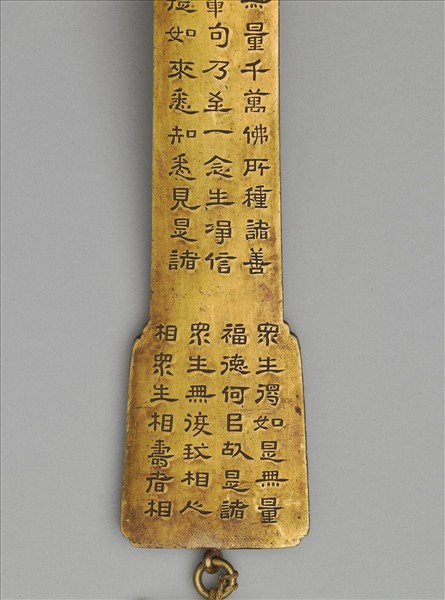 無量千萬佛所種諸善
句乃至一念生淨信
如來悉知悉見是諸
眾生得如是無量
福德何以故是諸
眾生無復我相人
相眾生相壽者相